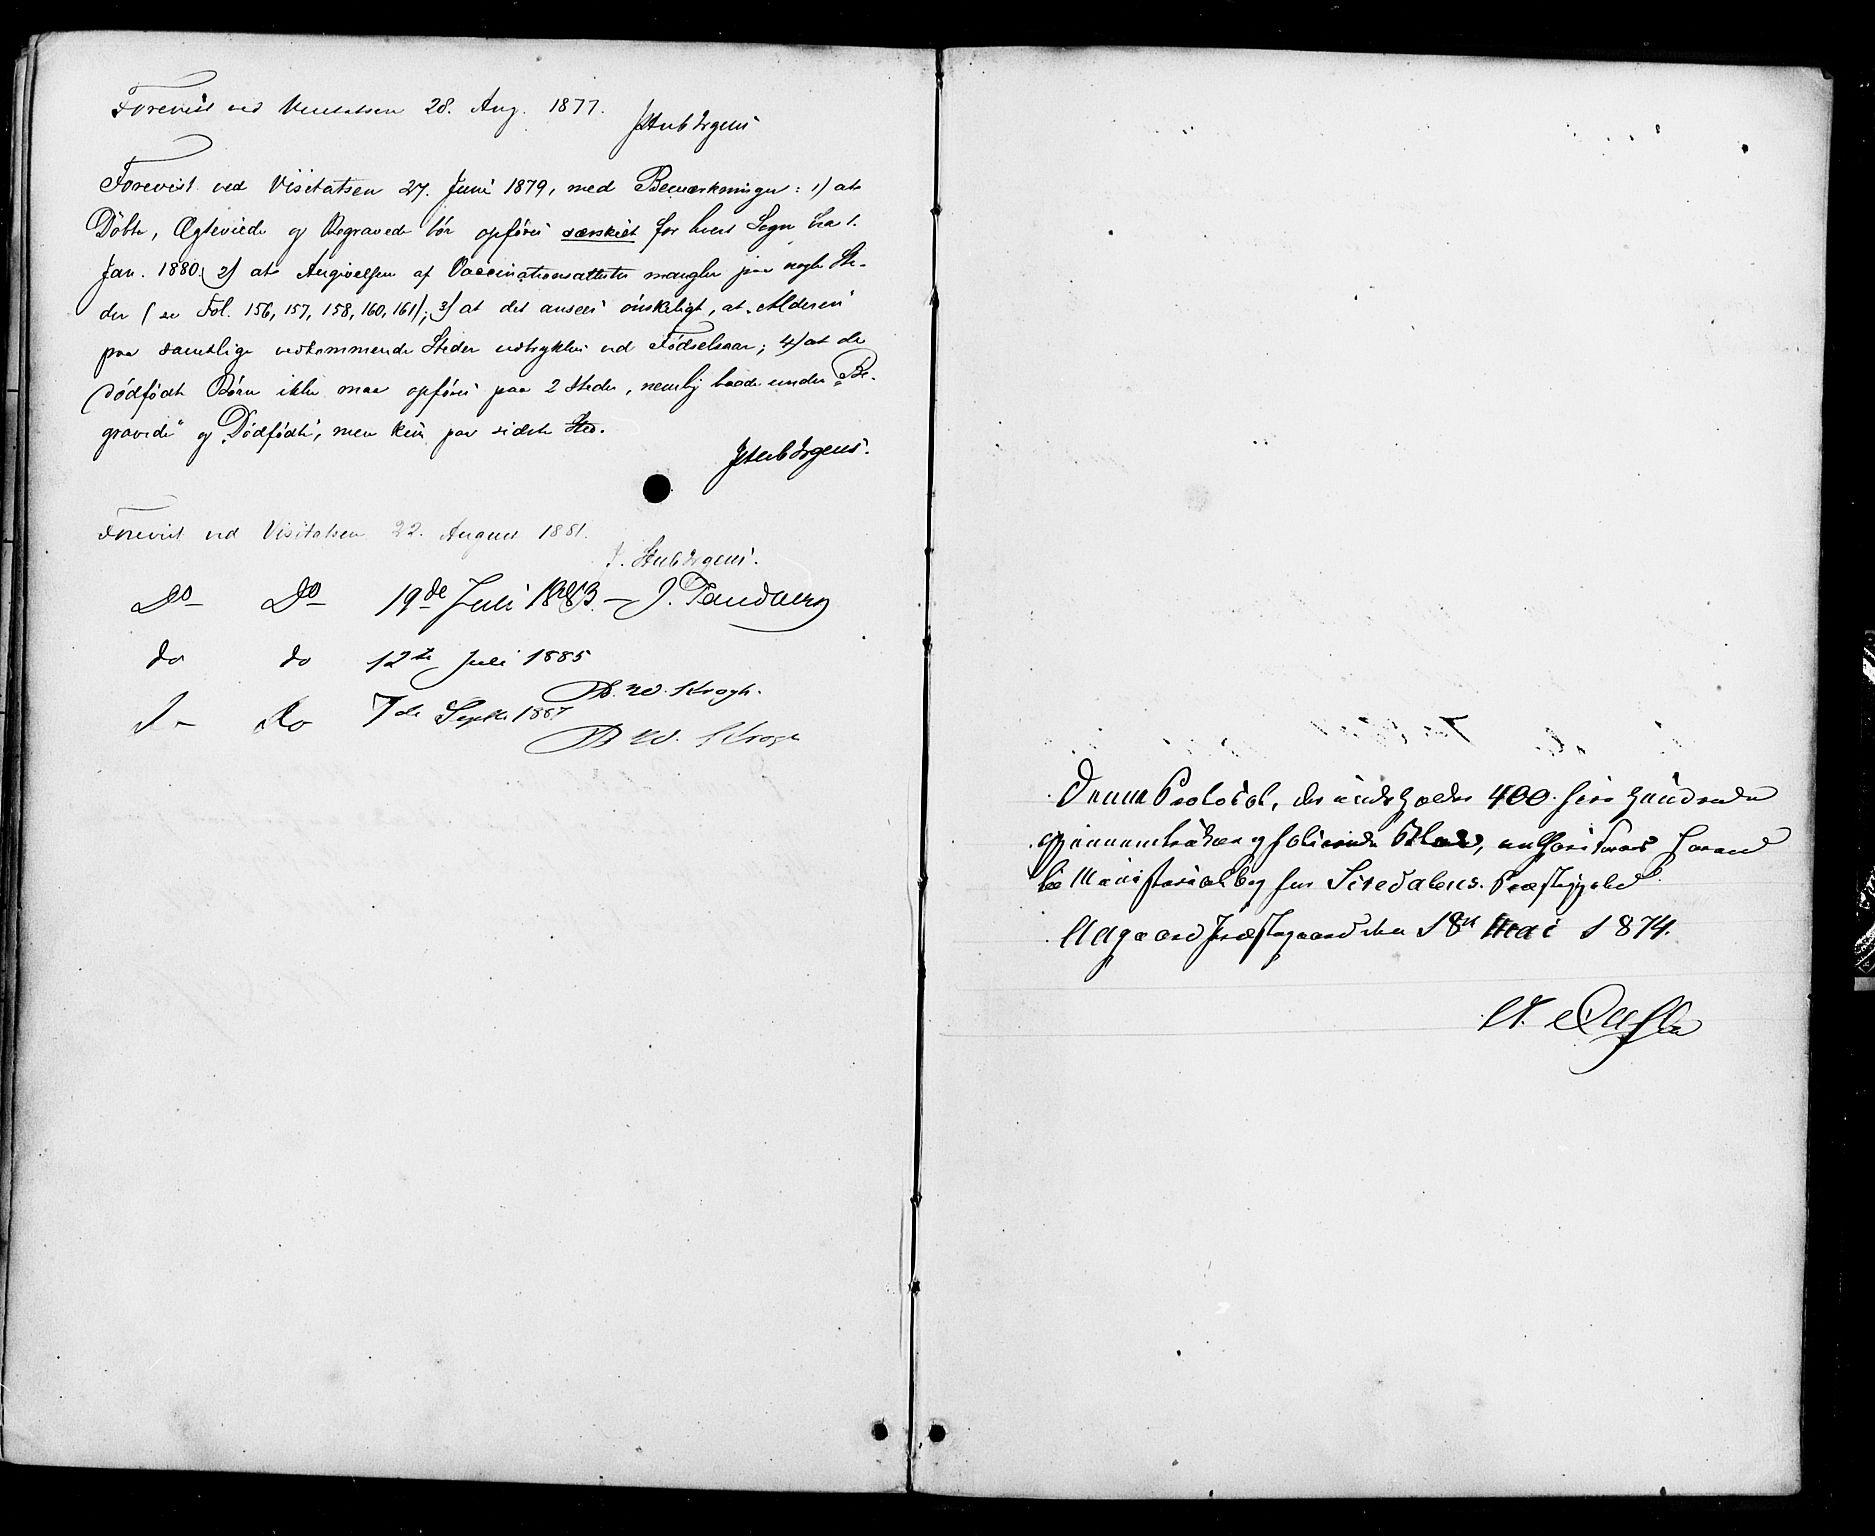 Forevist ved Visitatsen 28. Aug. 1877.
J Stub Irgens
Forevist ved Visitatsen 27. Juni 1879, med Bemærkninger: 1) at
Döbte, Ægteviede og Begravede bör opföres særskilt for hvert Sogn fra 1.
Jan. 1880. 2) at Angivelsen af Vaccinationsattester mangler paa nogle Ste-
der (se Fol. 156, 157, 158, 160, 161); 3) at det ansees önskeligt, at „Alderen“
paa samtlige vedkommende Steder udtrykkes ved Födselsaar; 4) at de
dödfödte Börn ikke maa opföres paa 2 Steder, nemlig baade under „Be-
gravede“ og „Dödfödte“, men kun paa sidste Sted.
J Stub Irgens.
Forevist ved Visitatsen 22. August 1881.
J. Stub Irgens.
Do Do 19de Juli 1883. – J. Tandberg
do do 12te Juli 1885
W. Krogh.
D– Do 7de Septbr 1887
W. Krogh
Denne Protokol, der indeholder 400 fire hundrede
gjennemtrukne og folierede Blade, authoriseres herved
til Ministerialbog for Siredalens Præstegjeld.
Aagaard Præstegaard den 18de Mai 1874.